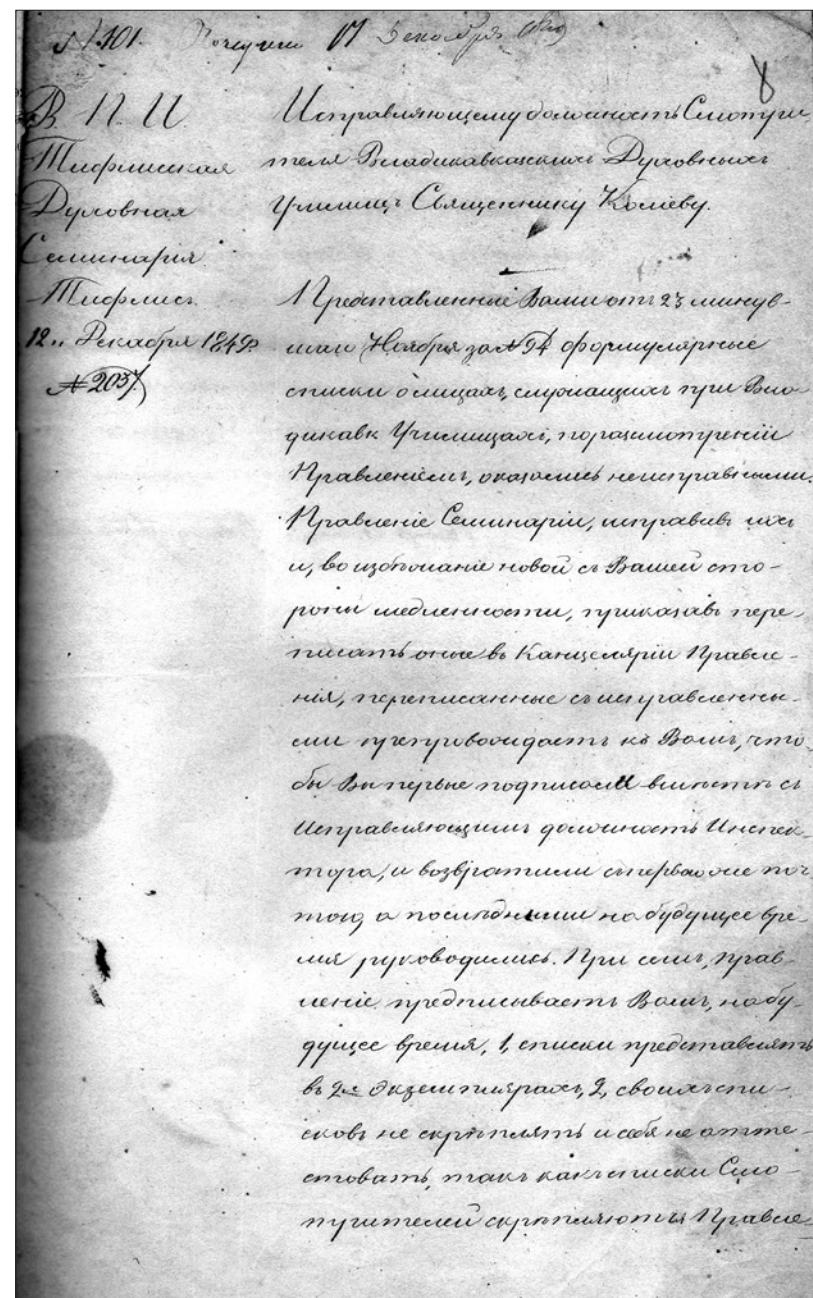 № 101. Получено 17 Декабря
8
В. П. И.
Тифлисская
Духовная
Семинария.
Тифлисъ.
12„ Декабря 1849.
№ 2037.
Исправляющему должность Смотри-
теля Владикавказскихъ Духовныхъ
Училищъ Священнику Коліеву.
Представленные Вами отъ 23 минув-
шаго Ноября за № 94 формулярные
списки о лицахъ, служащихъ при Вла-
дикавк Училищахъ, по разсмотреніи
Правленіемъ, оказались неисправными.
Правленіе Семинаріи, исправивъ ихъ
и, во избѣжаніе новой съ Вашей сто-
роны медленности, приказавъ пере-
писать оные въ Канцеляріи Правле-
нія, переписанные съ исправленны-
ми препровождаетъ къ Вамъ, что-
бы Вы первые подписали вмѣстѣ съ
Исправляющимъ должность Инспек-
тора, и возвратили съ первою же поч-
тою, а послѣдними на будущее вре-
мя руководились. При семъ, прав-
леніе предписываетъ Вамъ, на бу-
дущее время, 1, списки представлять
въ 2хъ экземплярахъ, 2, своихъ спи-
сковъ не скрѣплять и себя не атте-
стовать, такъ какъ списки Смо-
трителей скрѣпляются Правле-